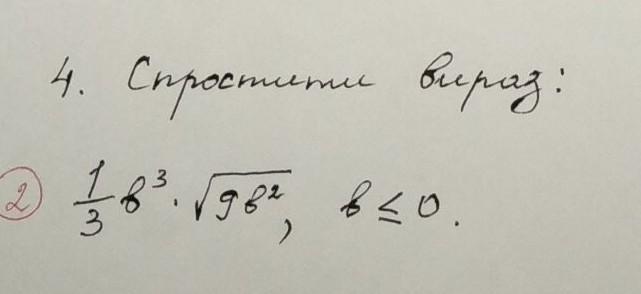 4. Спростити вираз:
② 1/3 в³ · √9в², в ≤ 0.